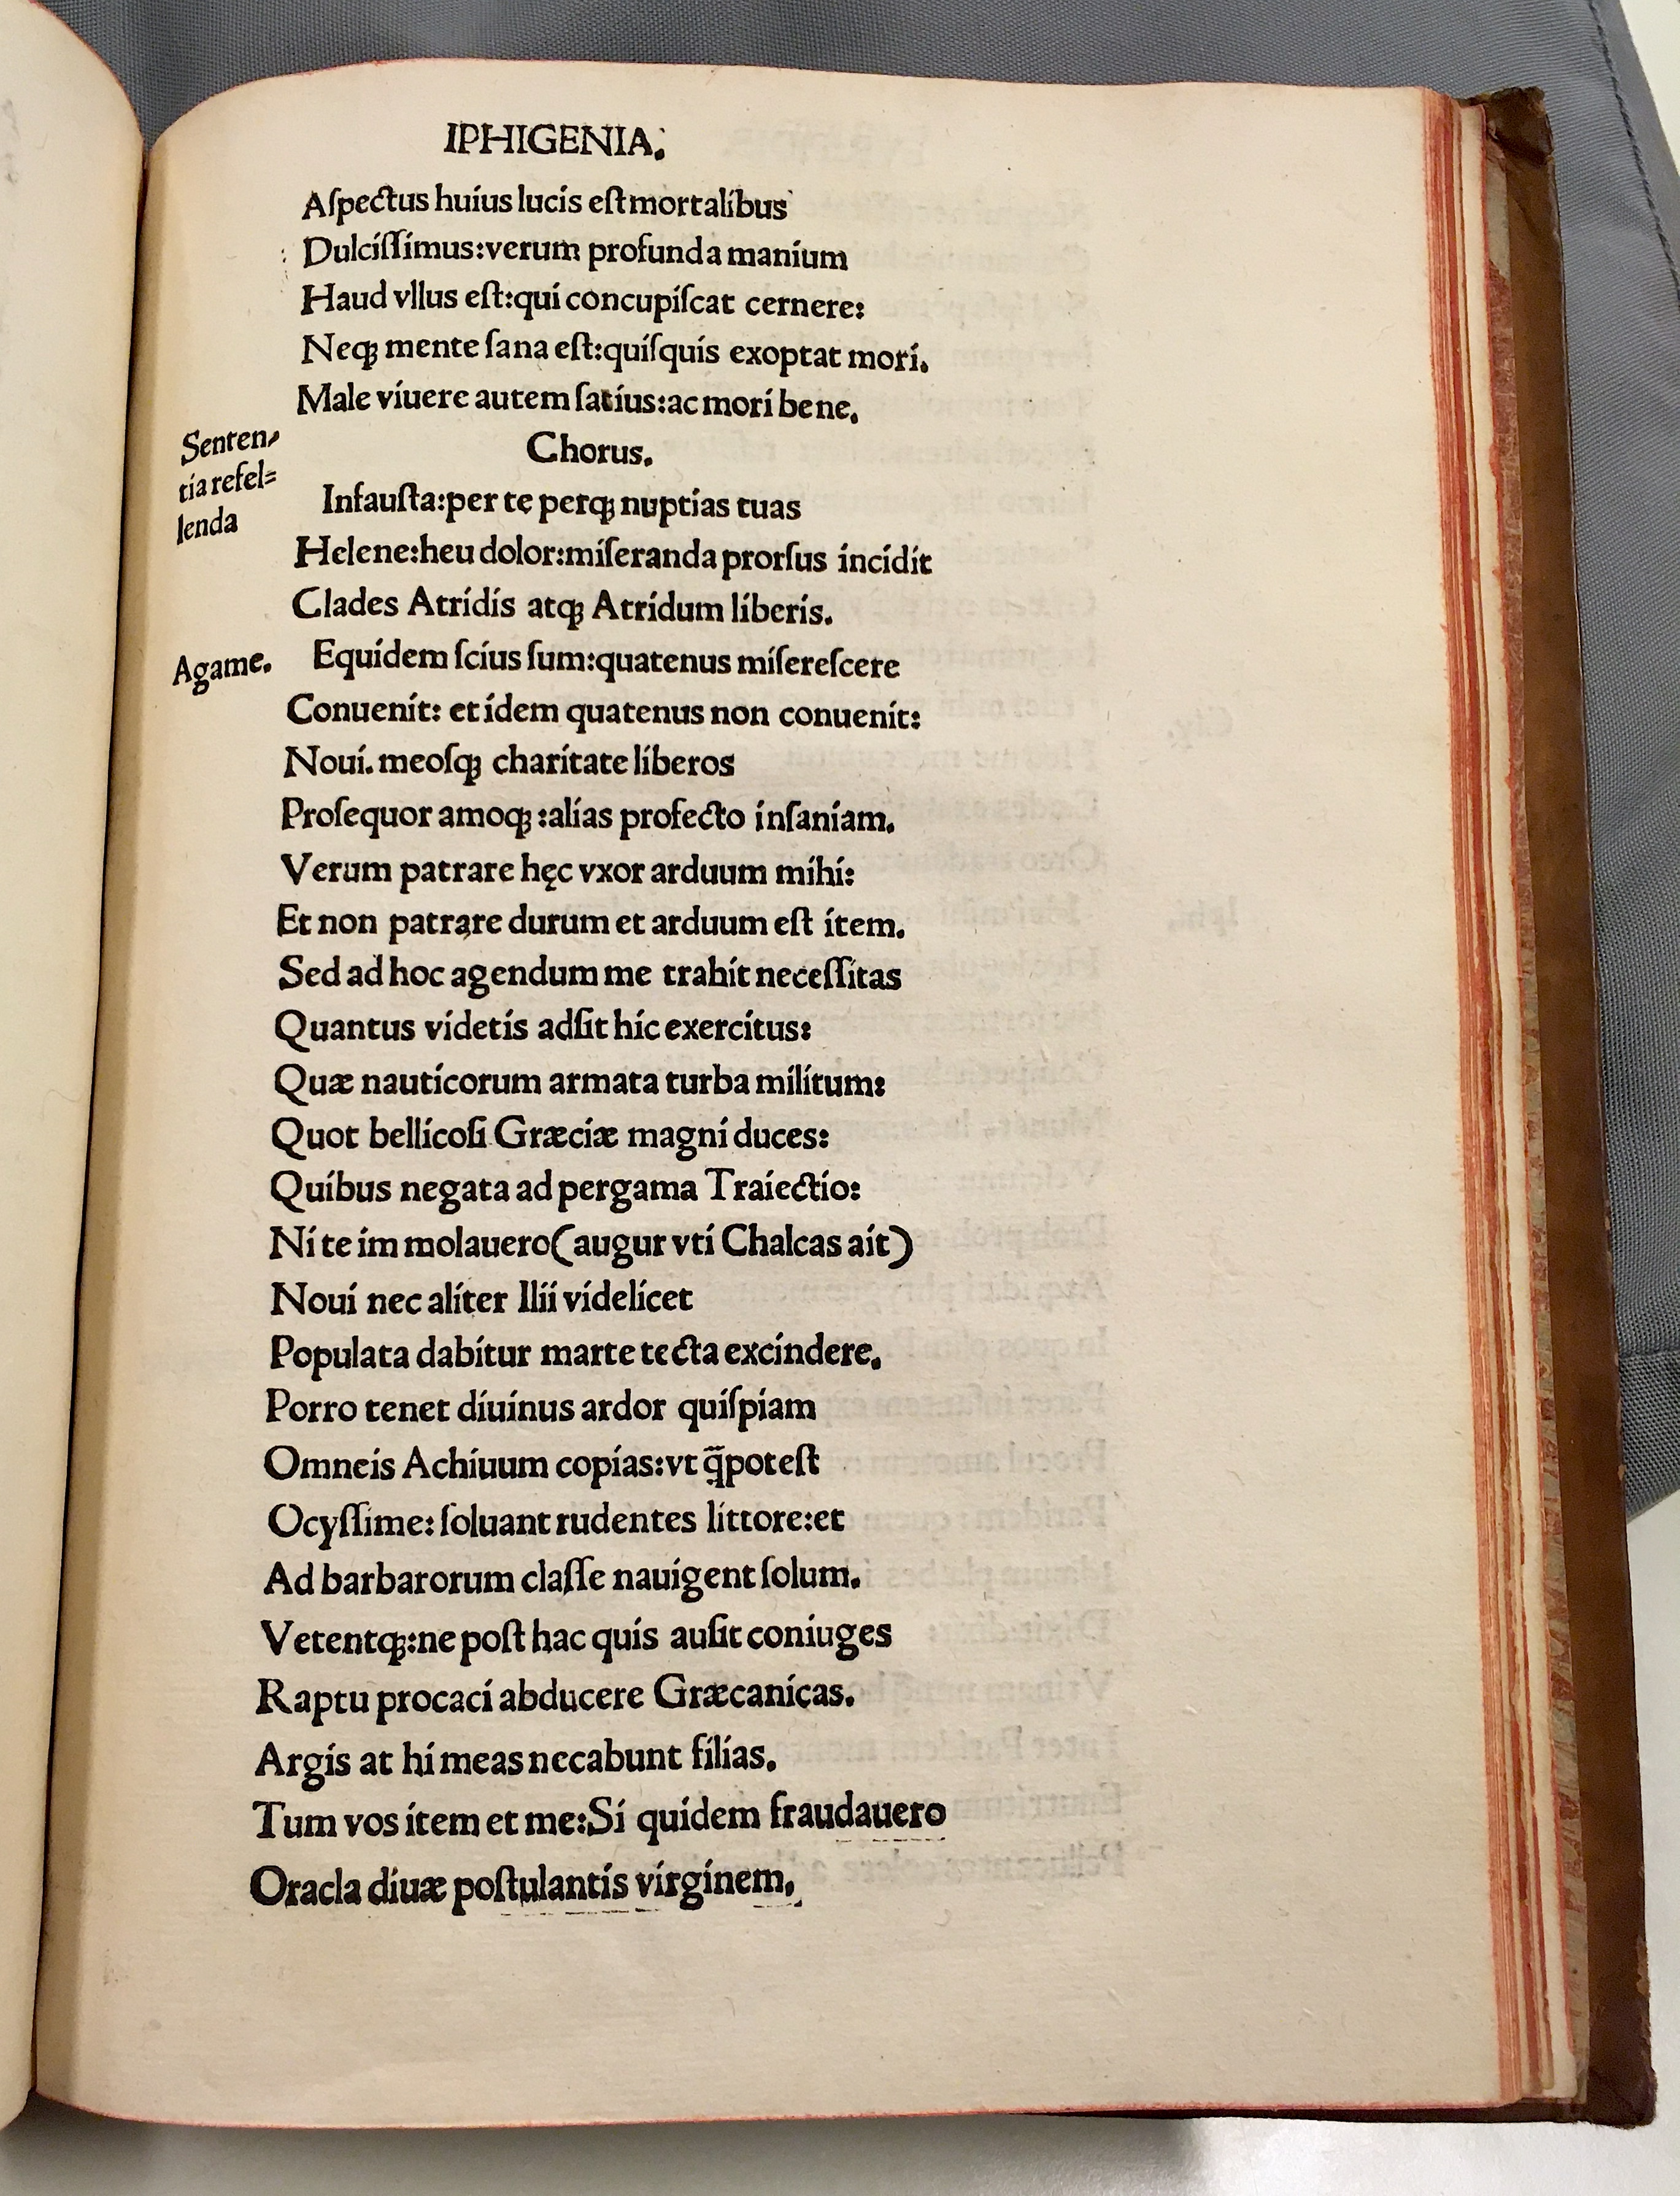 IPHIGENIA.
Aſpectus huius lucis eſt mortalibus
Dulciſſimus:verum profunda manium
Haud vllus eſt:qui concupiſcat cernere:
Neqꝫ mente ſana eſt:quiſquis exoptat mori.
Male viuere autem ſatius:ac mori bene.
Chorus.
Senten-
tia refel=
lenda
Infauſta:per te perqꝫ nuptias tuas
Helene:heu dolor:miſeranda prorſus incidit
Clades Atridis atqꝫ Atridum liberis.
Agame.
Equidem ſcius ſum:quatenus miſereſcere
Conuenit: et idem quatenus non conuenit:
Noui. meoſqꝫ charitate liberos
Proſequor amoqꝫ :alias profecto inſaniam.
Verum patrare hęc vxor arduum mihi:
Et non patrare durum et arduum eſt item.
Sed ad hoc agendum me trahit neceſſitas
Quantus videtis adſit hic exercitus:
Quæ nauticorum armata turba militum:
Quot bellicoſi Græciæ magni duces:
Quibus negata ad pergama Traiectio:
Ni te im molauero(augur vti Chalcas ait)
Noui nec aliter Ilii videlicet
Populata dabitur marte tecta excindere.
Porro tenet diuinus ardor quiſpiam
Omneis Achiuum copias:vt q̄potest
Ocyſſime: ſoluant rudentes littore:et
Ad barbarorum claſſe nauigent ſolum.
Vetentqꝫ:ne poſt hac quis auſit coniuges
Raptu procaci abducere Græcanicas.
Argis at hi meas necabunt filias.
Tum vos item et me:Si quidem fraudauero
Oracla diuæ poſtulantis virginem.